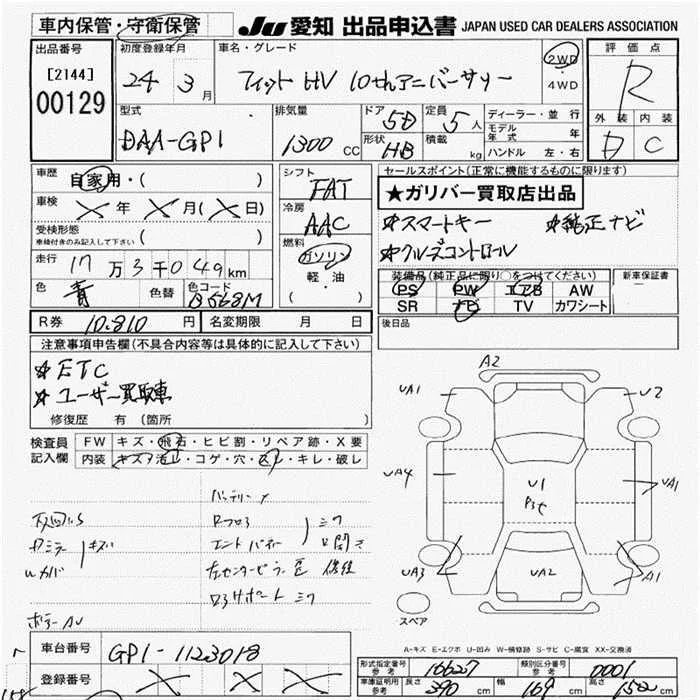 車内保管・守衛保管
JU 愛知 出品申込書 JAPAN USED CAR DEALERS ASSOCIATION
出品番号
[2144]
00129
初度登録年月
24 3月
車名・グレード
フィット HV 10thアニバーサリー
2WD・4WD
評価点
R
外装 内装
D C
型式
DAA-GP1
排気量
1300 CC
ドア 5D
形状 HB
定員 5人
積載 kg
ディーラー・並行
モデル年式 年
ハンドル 左・右
車歴
自家用・( )
車検
× 年 × 月(× 日)
受検形態
車検付きのみ記入して下さい ( )
走行
17万3千049km
色 青 色替 色コード B568M
シフト
FAT
冷房
AAC
燃料
ガソリン
軽・油
( )
セールスポイント(正常に機能するものに限ります)
★ガリバー買取店出品
☆スマートキー ☆純正ナビ
☆クルーズコントロール
装備品(純正品に限り○をつけてください)
PS PW エアB AW
SR ナビ TV カワシート
新車保証書
後日品
R券 10,810円 名変期限 月 日
注意事項申告欄(不具合内容等は具体的に記入して下さい)
☆ETC
☆ユーザー買取車
修復歴 有 (箇所 )
検査員記入欄
FW キズ・飛石・ヒビ割・リペア跡・X要
内装 キズ・汚れ・コゲ・穴・スレ・キレ・破レ
バッテリーナ
キズ
左センターピラー 修後
サポート
A2
UA1 U2
UA4 U1 UA1
UA3 UA2 A1
スペア
A-キズ E-エクボ U-凹み W-補修跡 S-サビ C-腐食 XX-交換済
車台番号 GP1-1123018
登録番号 × × ×
形式指定番号 参考 16627 類別区分番号 参考 0001
車庫証明用 参考 長さ 390cm 幅 169cm 高さ 152cm